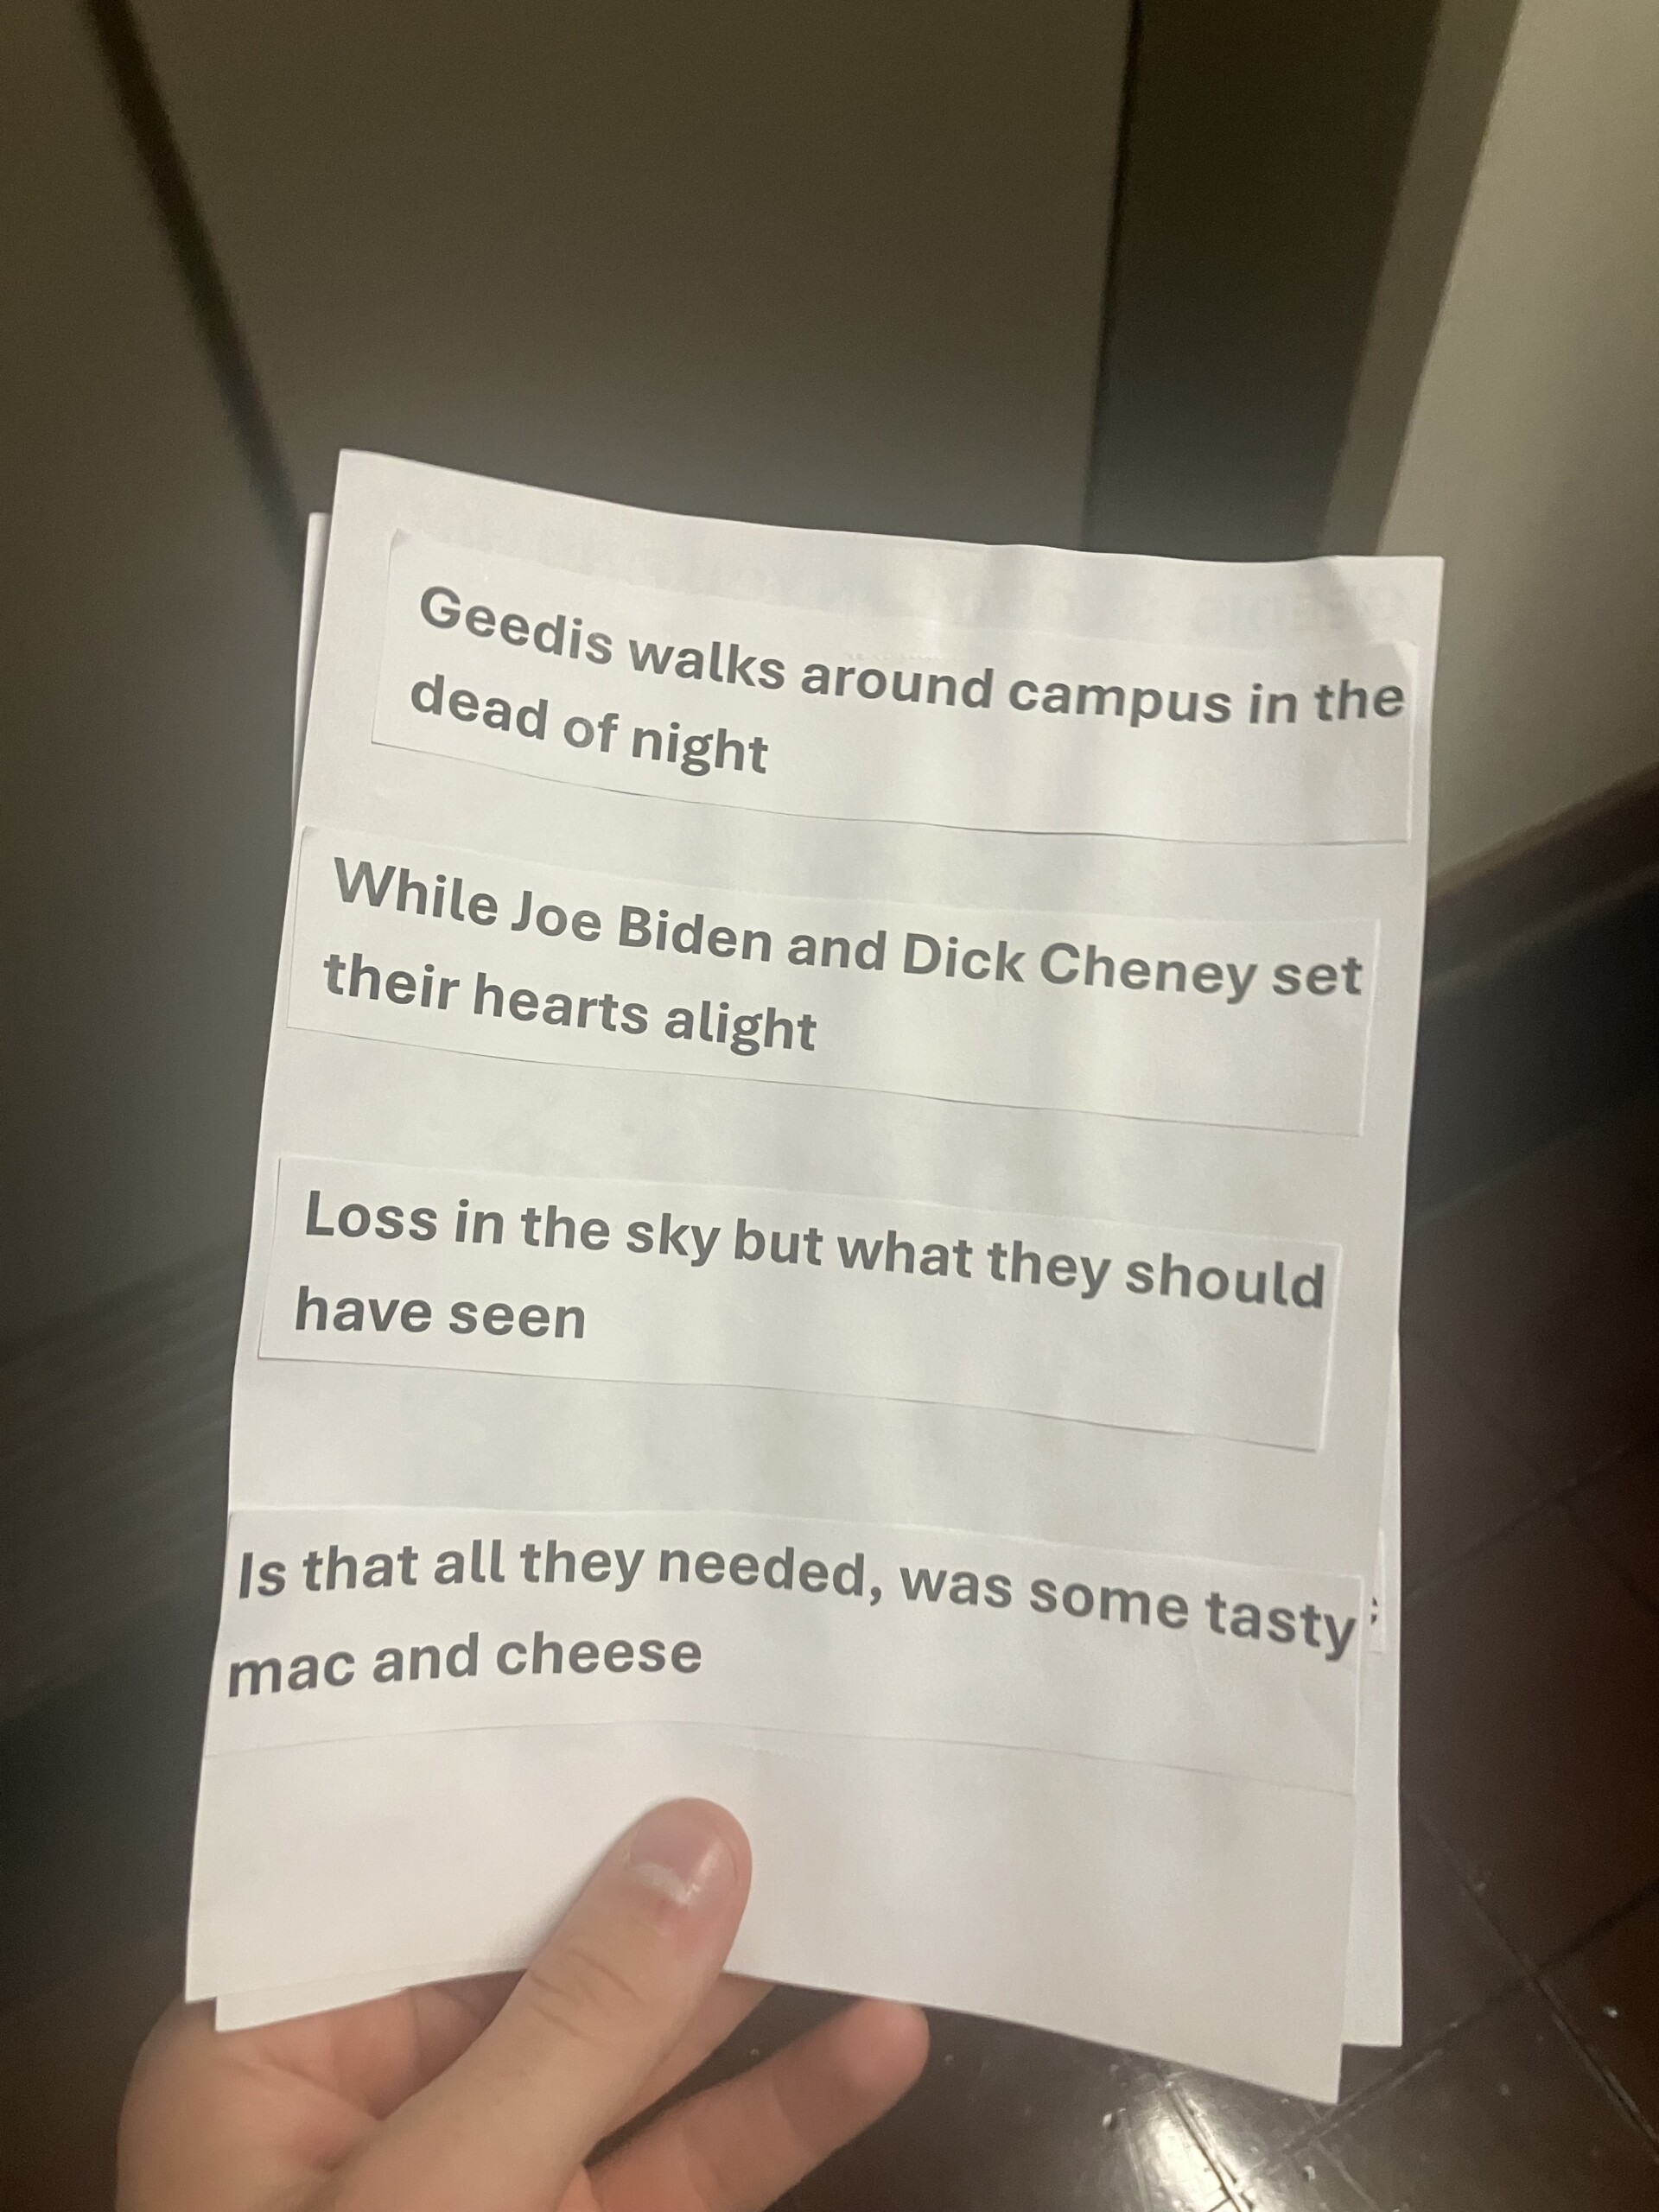 Geedis walks around campus in the
dead of night
While Joe Biden and Dick Cheney set
their hearts alight
Loss in the sky but what they should
have seen
Is that all they needed, was some tasty
mac and cheese